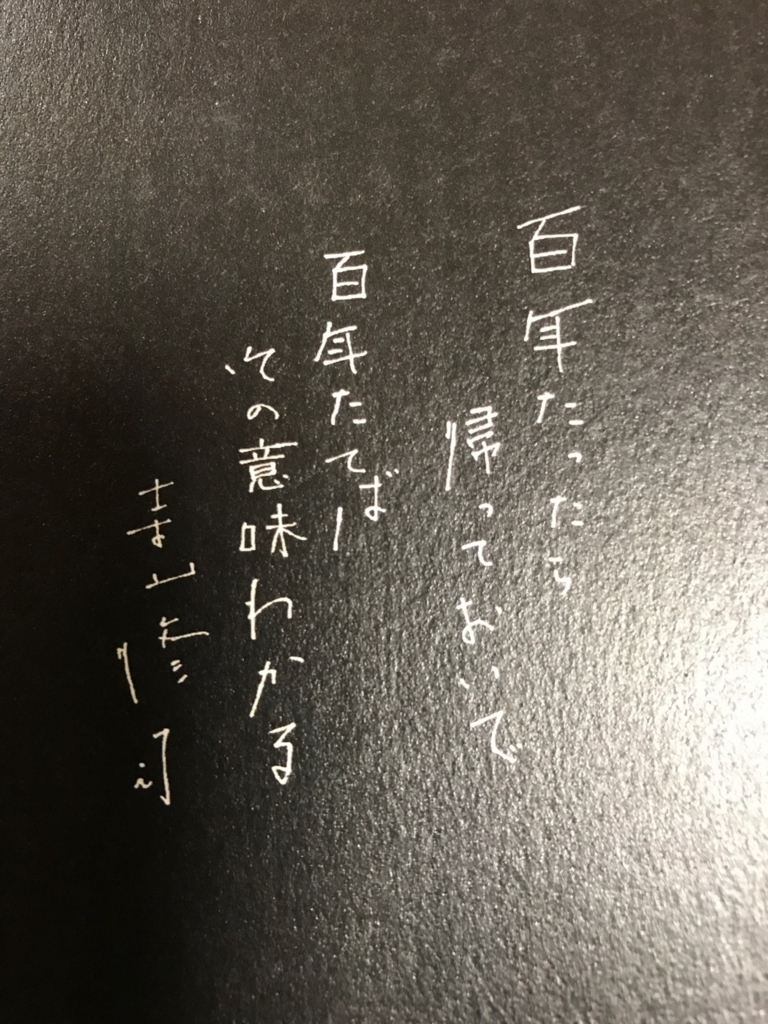 百年たったら
帰っておいで
百年たてば
その意味わかる
寺山修司